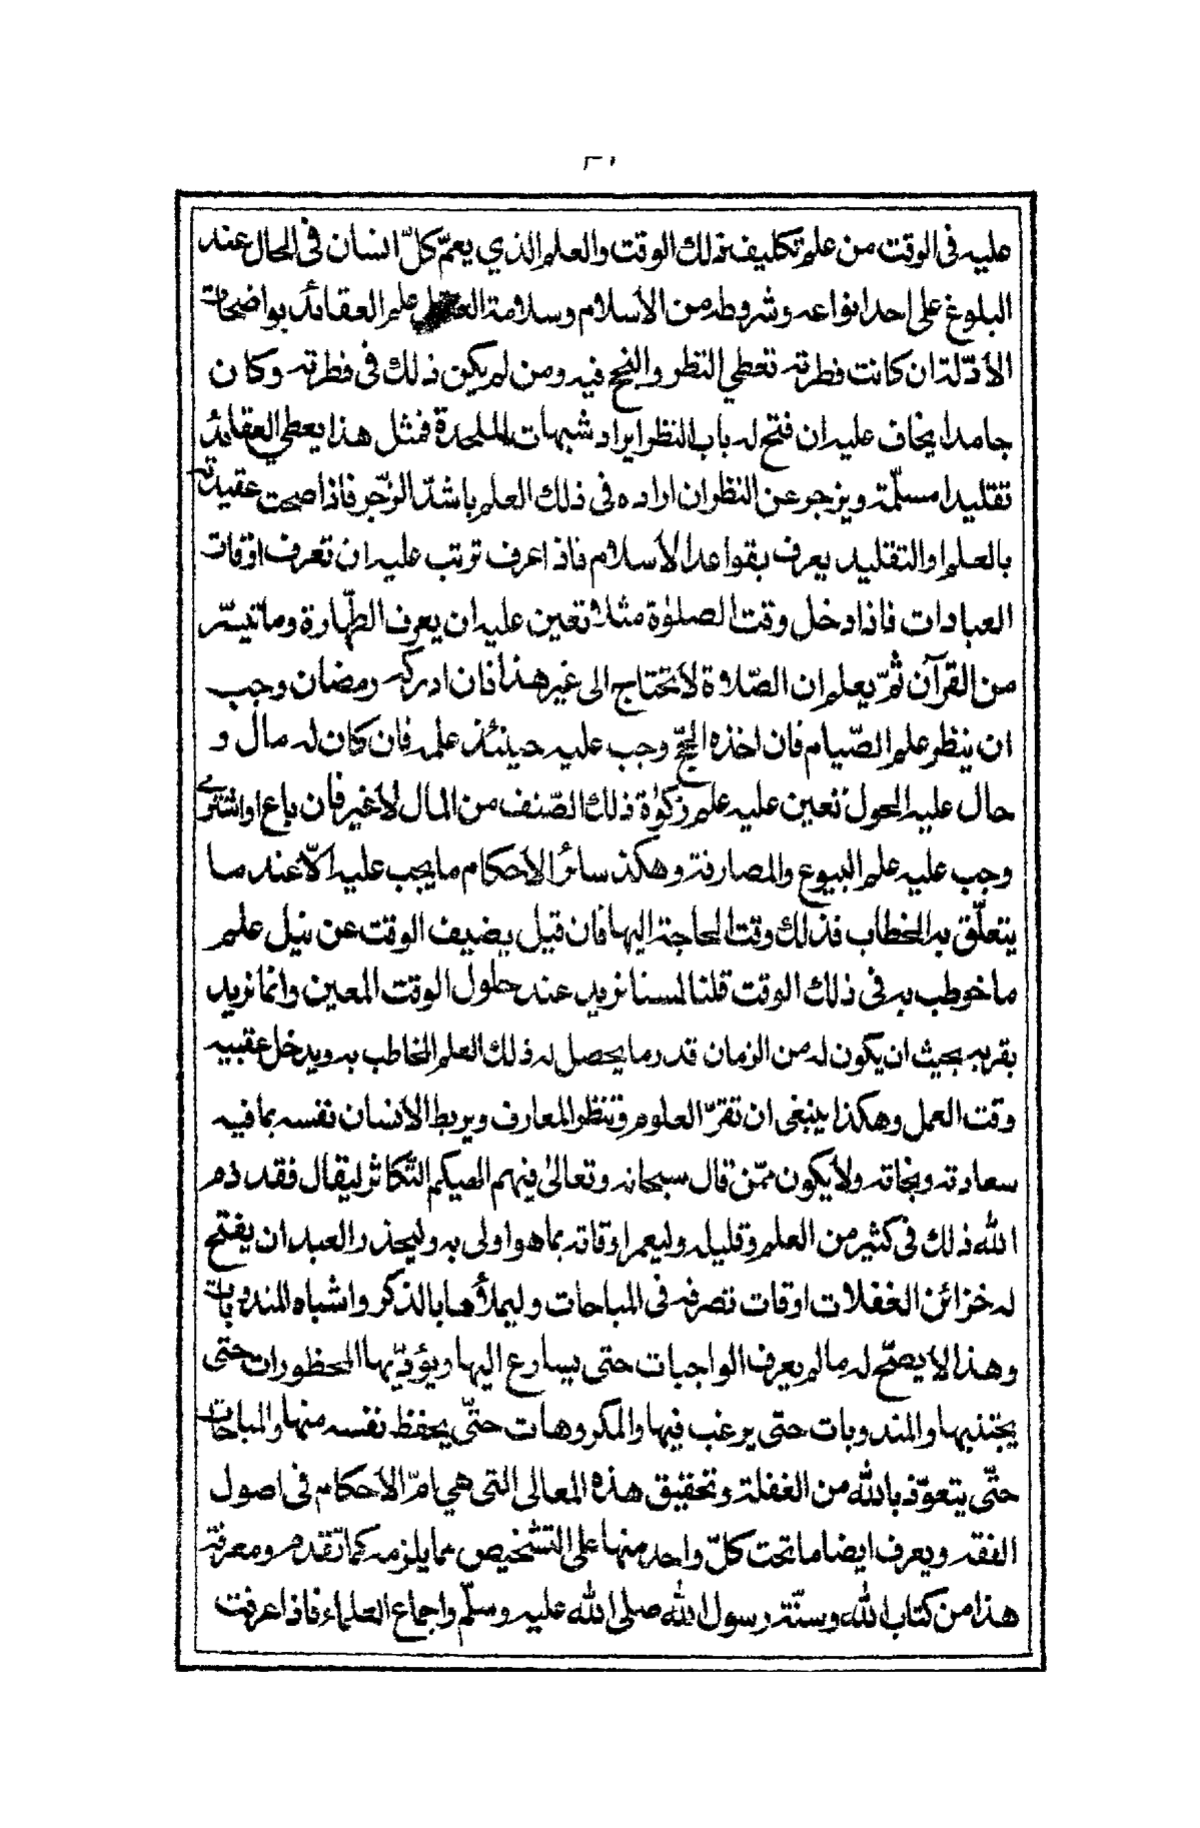 عليه فى الوقت من علم تكليف ذلك الوقت والعلم الذي يعمّ كلّ انسان فى الحال عند
البلوغ على احد انواعه وشروطه من الأسلام وسلامة العقل علم العقائد بواضحات
الأدّلة ان كانت فطرته تعطي النظر والنجح فيه ومن لم يكن ذلك فى فطرته وكان
جامدا يخاف عليه ان فتح له باب النظر ايراد شبهات الملحدة فمثل هذا يعطي العقائد
تقليدا مسلّمة ويزجر عن النظر ان اراده فى ذلك العلم باشدّ الزّجر فاذا صحت عقيدته
بالعلم او التقليد يعرف بقواعد الأسلام فاذا عرف ترتب عليه ان تعرف اوقات
العبادات فاذا دخل وقت الصلوٰة مثلا تعين عليه ان يعرف الطّهارة وما تيسّر
من القرآن ثمّ يعلم ان الصّلاة لأ تحتاج الى غير هذا فان ادركه رمضان وجب
ان ينظر علم الصّيام فان اخذه الحجّ وجب عليه حينئذ علمه فان كان له مال و
حال عليه الحول تعين عليه علم زكوٰة ذلك الصّنف من المال لأ غير فان باع او اشترى
وجب عليه علم البيوع والمصارفة وهكذ سائر الأحكام ما يجب عليه الّا عند ما
يتعلّق به الخطاب فذلك وقت الحاجة اليها فان قيل يضيف الوقت عن نيل علم
ما خوطب به فى ذلك الوقت قلنا لسنا نريد عند حلول الوقت المعين وانما نريد
بقربه بحيث ان يكون له من الزمان قدر ما يحصل له ذلك العلم المخاطب به ويدخل عقبيه
وقت العمل وهكذا ينبغى ان تقرّ العلوم وتنظر المعارف ويربط الأنسان نفسه بما فيه
سعادته ونجاته ولأ يكون ممّن قال سبحانه وتعالىٰ فيهم الهيكم التّكاثر ليقال فقد ذم
الله ذلك فى كثير من العلم وقليله وليعمر اوقاته بما هو اولى به وليحذر العبد ان يفتح
له خزائن الغفلات اوقات تصرفه فى المباحات وليملأها بالذكر واشباه المندوبات
وهذا لأ يصحّ له ما لم يعرف الواجبات حتى يسارع اليها ويؤدّيها المحظورات حتى
يجتنبها والمندوبات حتى يرغب فيها والمكروهات حتّى يحفظ نفسه منها والمباحات
حتّى يتعوّذ بالله من الغفلة وتحقيق هذه المعالى التى هي امّ الأحكام فى اصول
الفقه ويعرف ايضا ما تحت كلّ واحد منها على التشخيص مما يلزمه كما تقدم ومعرفة
هذا من كتاب الله وسنّة رسول الله صلى الله عليه وسلّم واجماع العلماء فاذا عرفت